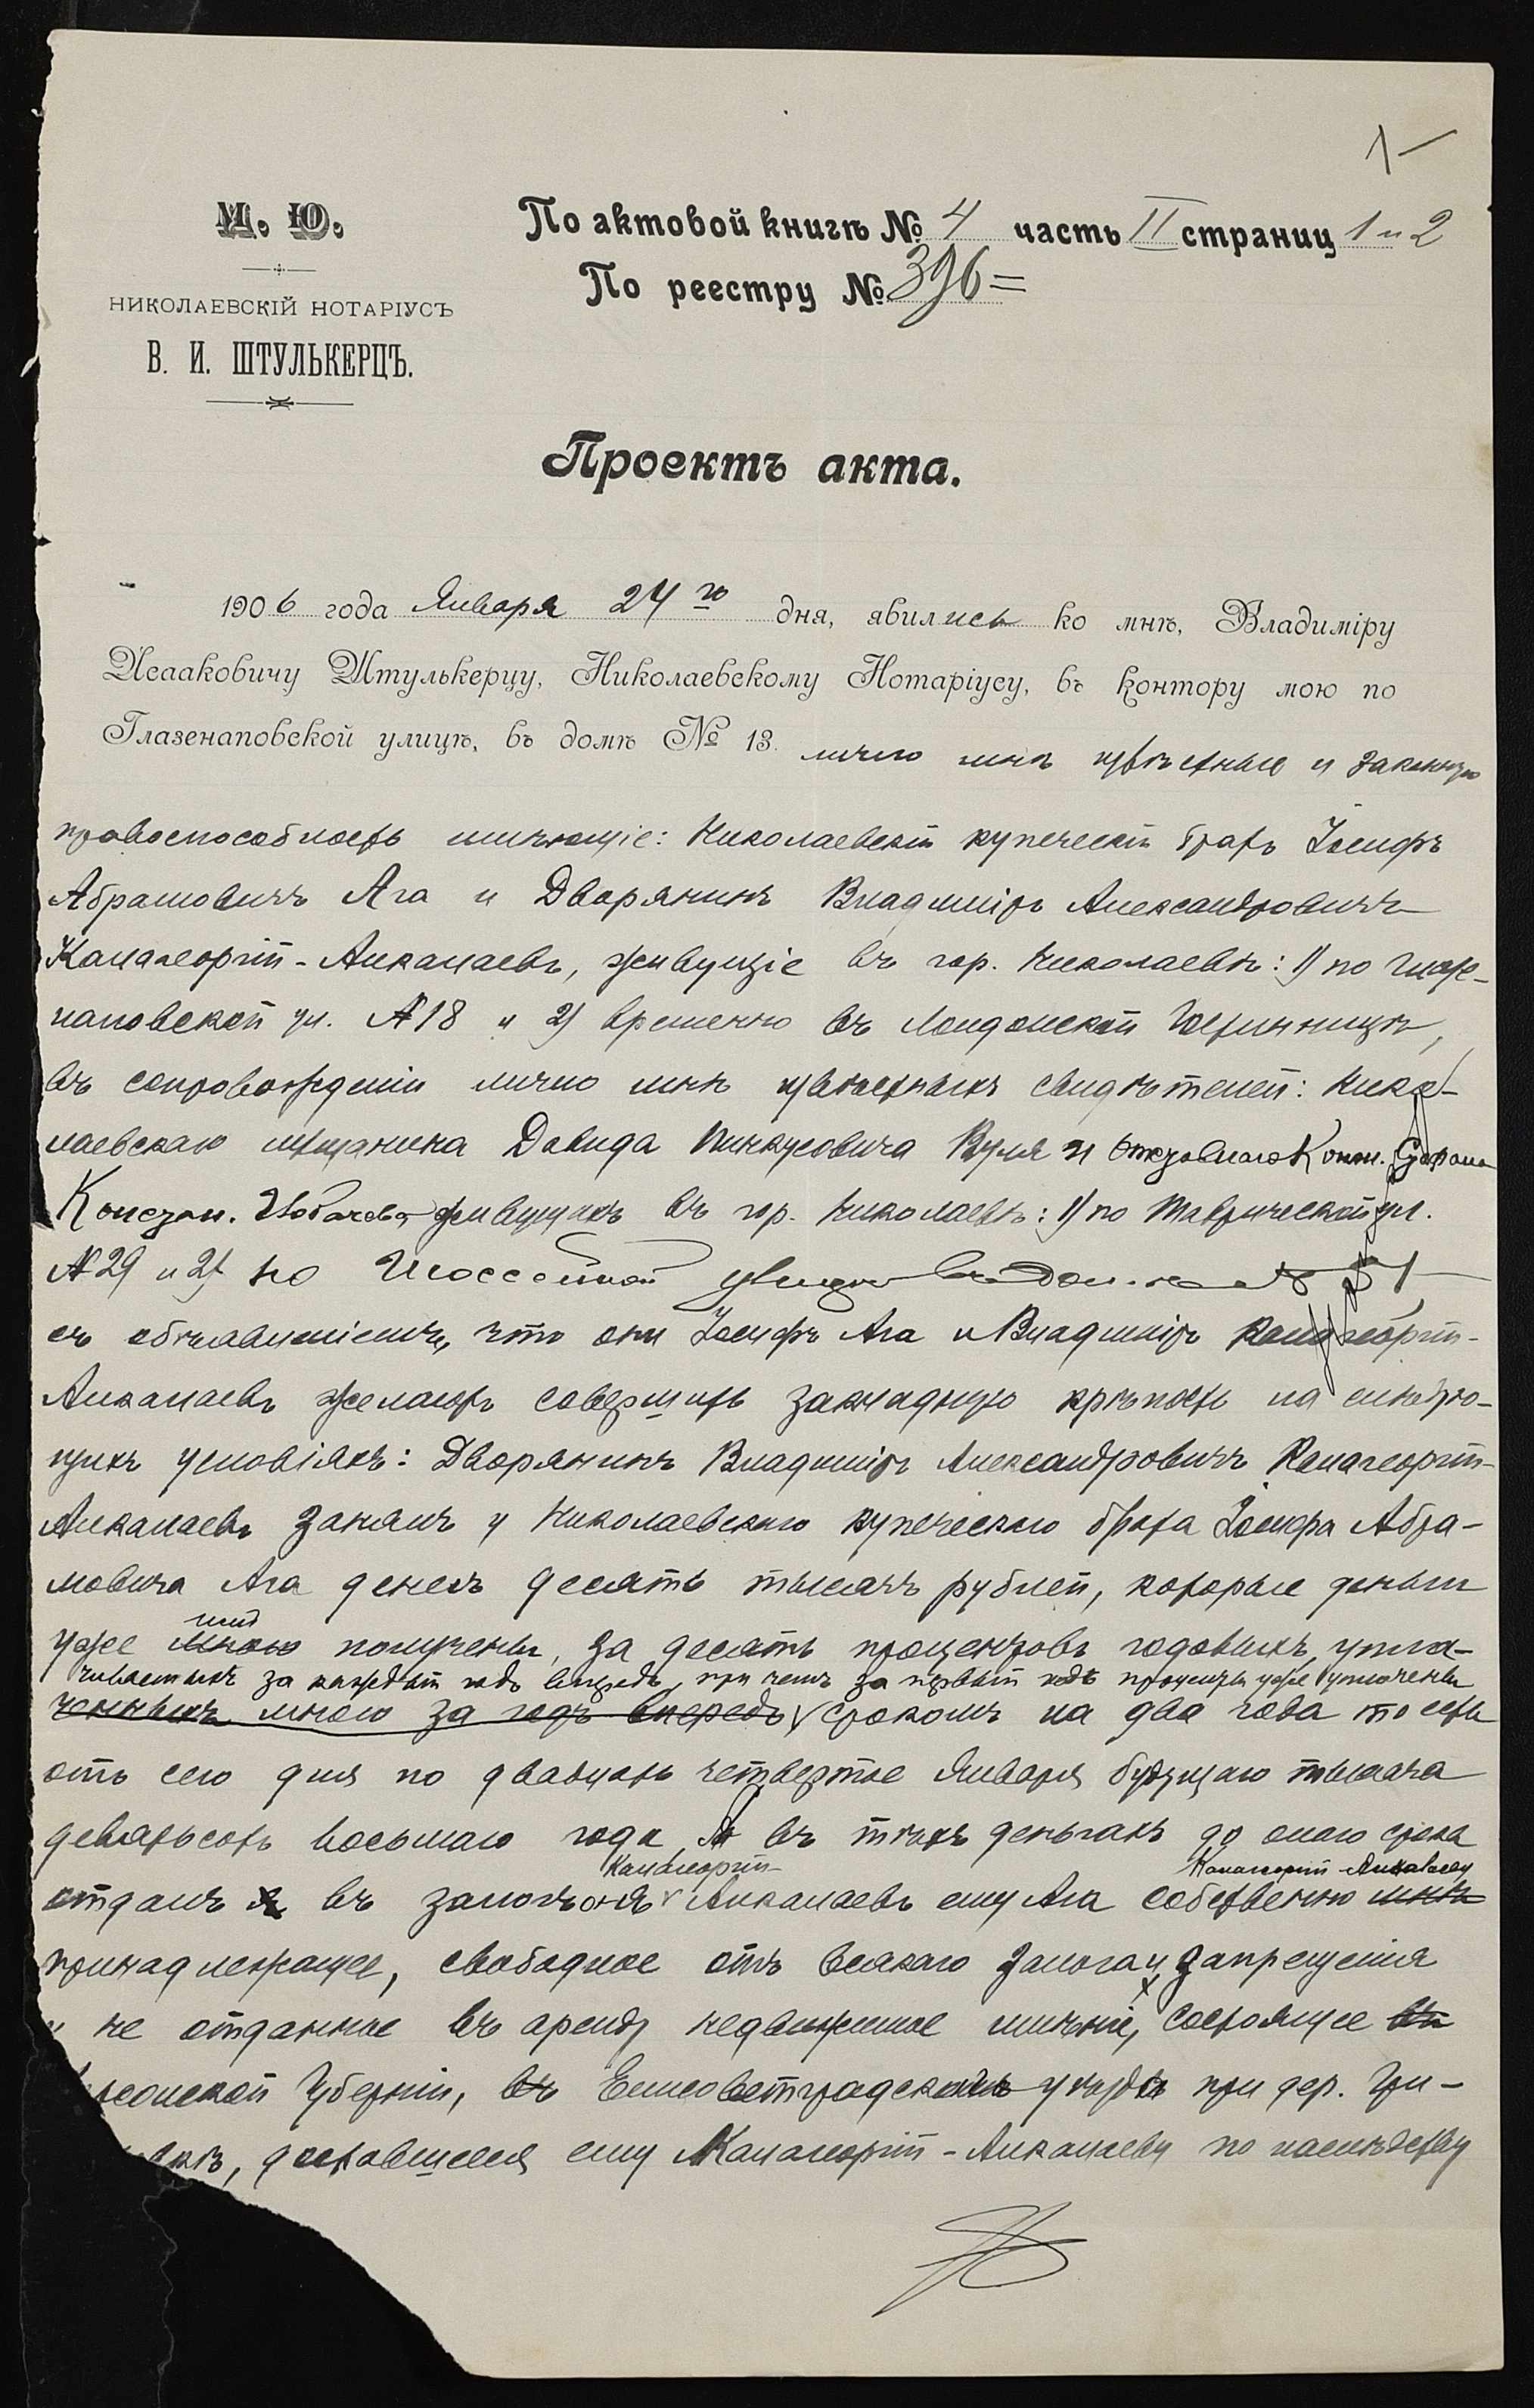 1
М. Ю.
НИКОЛАЕВСКІЙ НОТАРІУСЪ
В. И. ШТУЛЬКЕРЦЪ.
По актовой книгѣ № 4 часть II страниц 1 и 2
По реестру № 396 =
Проектъ акта.
1906 года Января 24го дня, явились ко мнѣ, Владиміру
Исааковичу Штулькерцу, Николаевскому Нотаріусу, въ контору мою по
Глазенаповской улицѣ, въ домѣ № 13. лично мнѣ извѣстные и законную
правоспособность имѣющіе: Николаевскій купеческій братъ Іосифъ
Абрамовичъ Ага и Дворянинъ Владиміръ Александровичъ
-Алкалаевъ, живущіе въ гор. Николаевѣ: 1) по Глазе-
наповской ул. № 18 и 2) временно въ Лондонской Гостинницѣ,
въ сопровожденіи лично мнѣ извѣстныхъ свидѣтелей: Нико-
лаевскаго мѣщанина Давида Пинкусовича Вуля и
живущихъ въ гор. Николаевѣ: 1) по Таврической ул.
№ 29 и 2) по Шоссейной улицѣ въ домѣ № 51
съ объявленіемъ, что они Іосифъ Ага и Владиміръ
Алкалаевъ желаютъ совершить закладную крѣпость на слѣдую-
щихъ условіяхъ: Дворянинъ Владиміръ Александровичъ
Алкалаевъ занялъ у Николаевскаго купеческаго брата Іосифа Абра-
мовича Ага денегъ десять тысячъ рублей, которые деньги
имъ
уже мною получены, за десять процентовъ годовыхъ, упла-
чиваемыхъ за каждый годъ впередъ, при чемъ за первый годъ проценты уже уплочены
ченныхъ мною за годъ впередъ срокомъ на два года то есть
отъ сего дня по двадцать четвертое Января будущаго тысяча
девятьсотъ восьмаго года, А въ тѣхъ деньгахъ до онаго срока
отдалъ я въ залогъ онъ Алкалаевъ ему Ага собственно мнѣ
принадлежащее, свободное отъ всякаго залога и запрещенія
и не отданное въ аренду недвижимое имѣніе, состоящее въ
Губерніи, въ Елисаветградскомъ уѣздѣ при дер. Гри-
доставшееся ему -Алкалаеву по наслѣдству